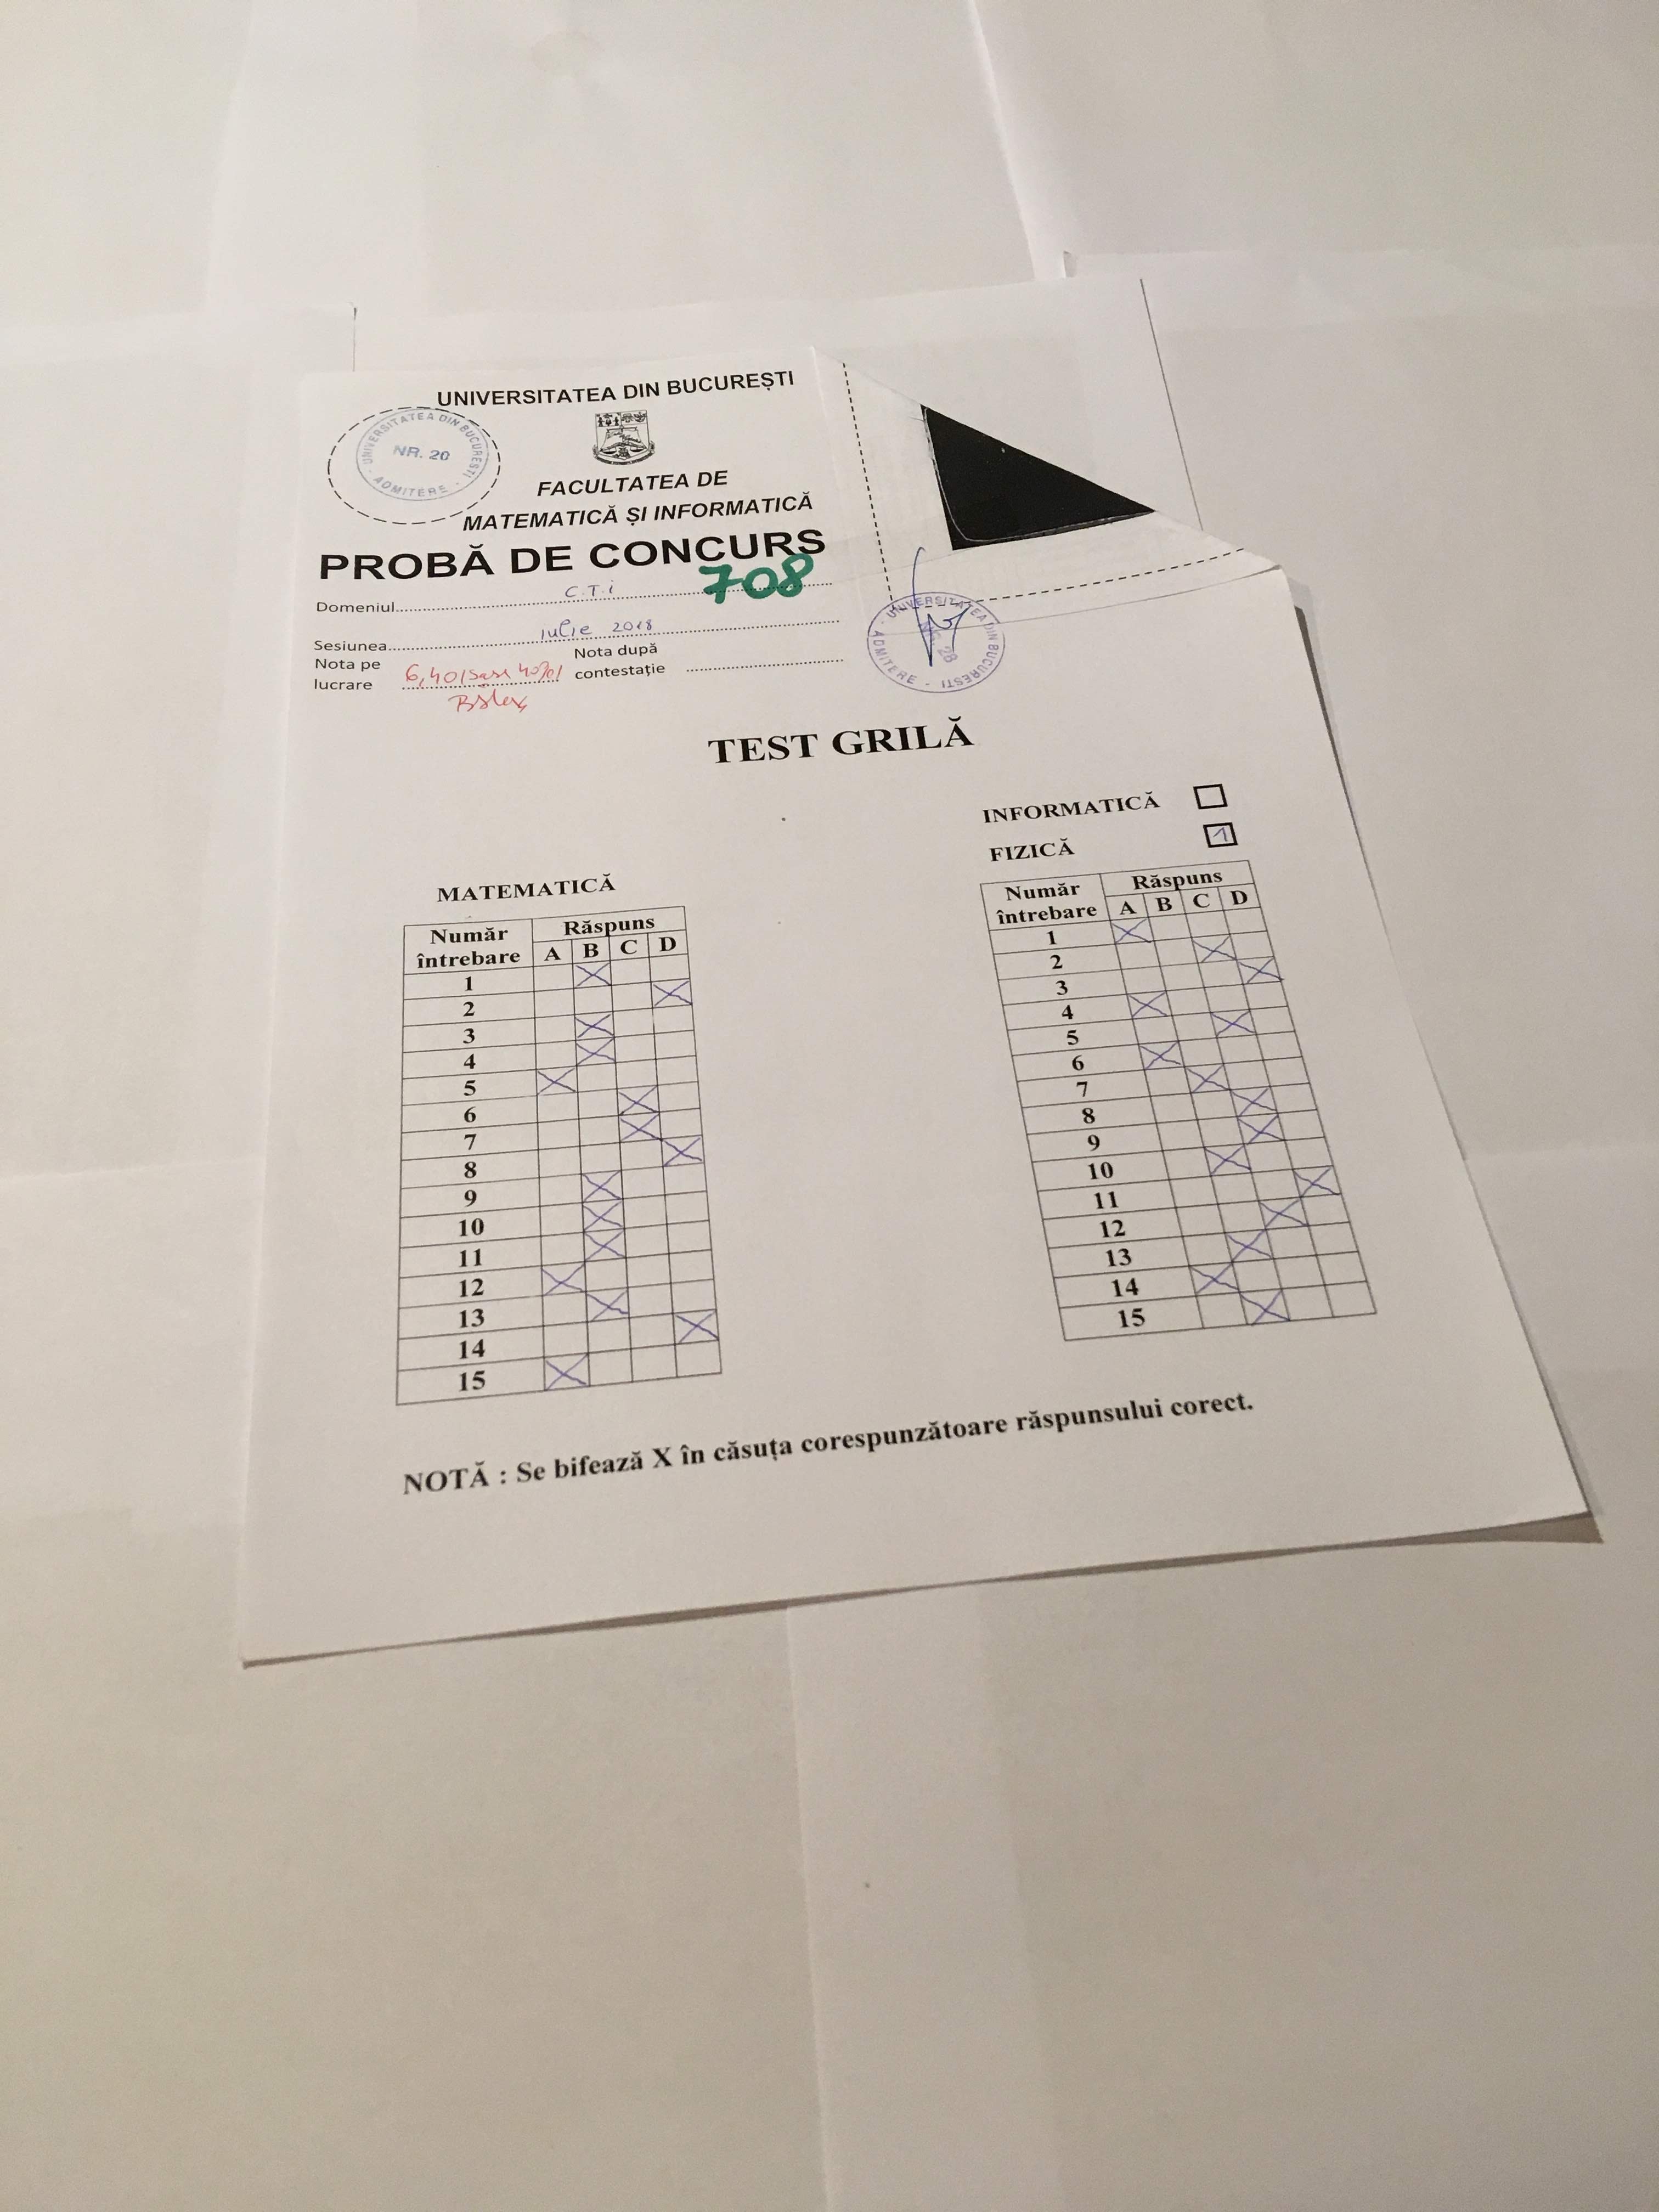 UNIVERSITATEA DIN BUCUREȘTI
UNIVERSITATEA DIN BUCUREȘTI - ADMITERE -
NR. 20
FACULTATEA DE
MATEMATICĂ ȘI INFORMATICĂ
PROBĂ DE CONCURS
708
Domeniul C.T.i
Sesiunea iulie 2018
Nota pe lucrare 6,40
Nota după contestație
UNIVERSITATEA DIN BUCURESTI - ADMITERE -
TEST GRILĂ
INFORMATICĂ
FIZICĂ 1
MATEMATICĂ
Număr întrebare Răspuns
A B C D
1 X
2 X
3 X
4 X
5 X
6 X
7 X
8 X
9 X
10 X
11 X
12 X
13 X
14 X
15 X
Număr întrebare Răspuns
A B C D
1 X
2 X
3 X
4 X
5 X
6 X
7 X
8 X
9 X
10 X
11 X
12 X
13 X
14 X
15 X
NOTĂ : Se bifează X în căsuța corespunzătoare răspunsului corect.